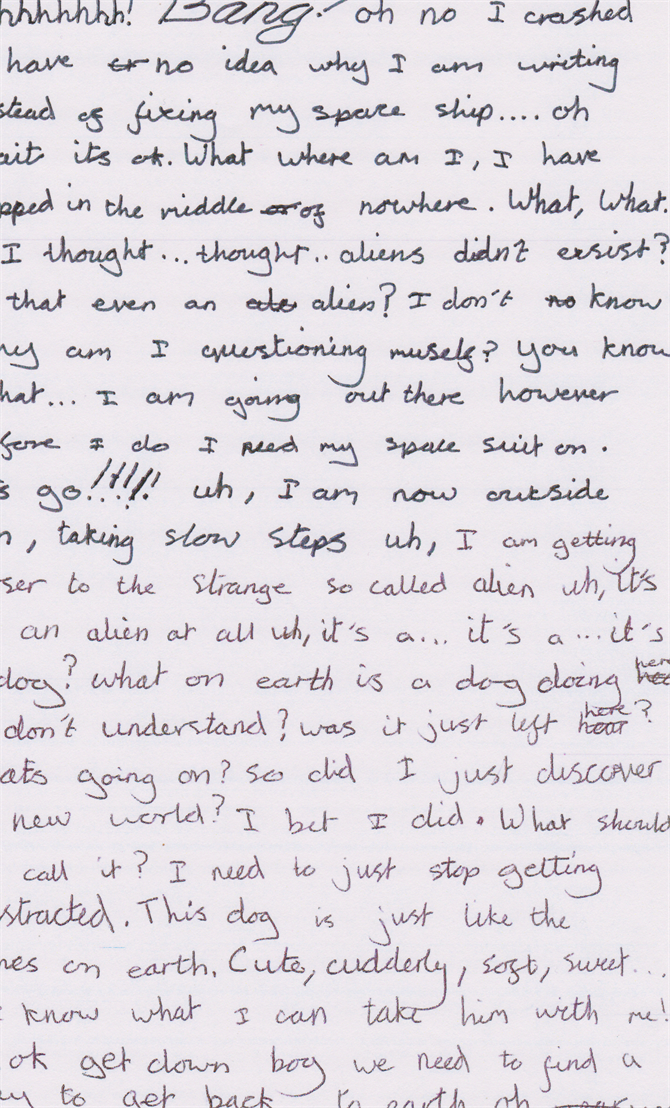 hhhhhhh! Bang! oh no I crashed
have or no idea why I am writing
stead of fixing my space ship.... oh
ait its ok. What where am I, I have
pped in the middle or of nowhere. What, What.
I thought... thought.. aliens didn't exsist?
that even an ale alien? I don't no know
hy am I questioning muself? You know
hat... I am going out there however
fore I do I need my space suit on.
s go!!!!! uh, I am now outside
n, taking slow steps uh, I am getting
ser to the strange so called alien uh, it's
an alien at all uh, it's a... it's a... it's
dog? what on earth is a dog doing here
don't understand? was it just left here hear?
ats going on? so did I just discover
new world? I bet I did. What should
call it? I need to just stop getting
stracted. This dog is just like the
nes on earth. Cute, cudderly, soft, sweet...
know what I can take him with me!
ok get down boy we need to find a
to get back to earth oh